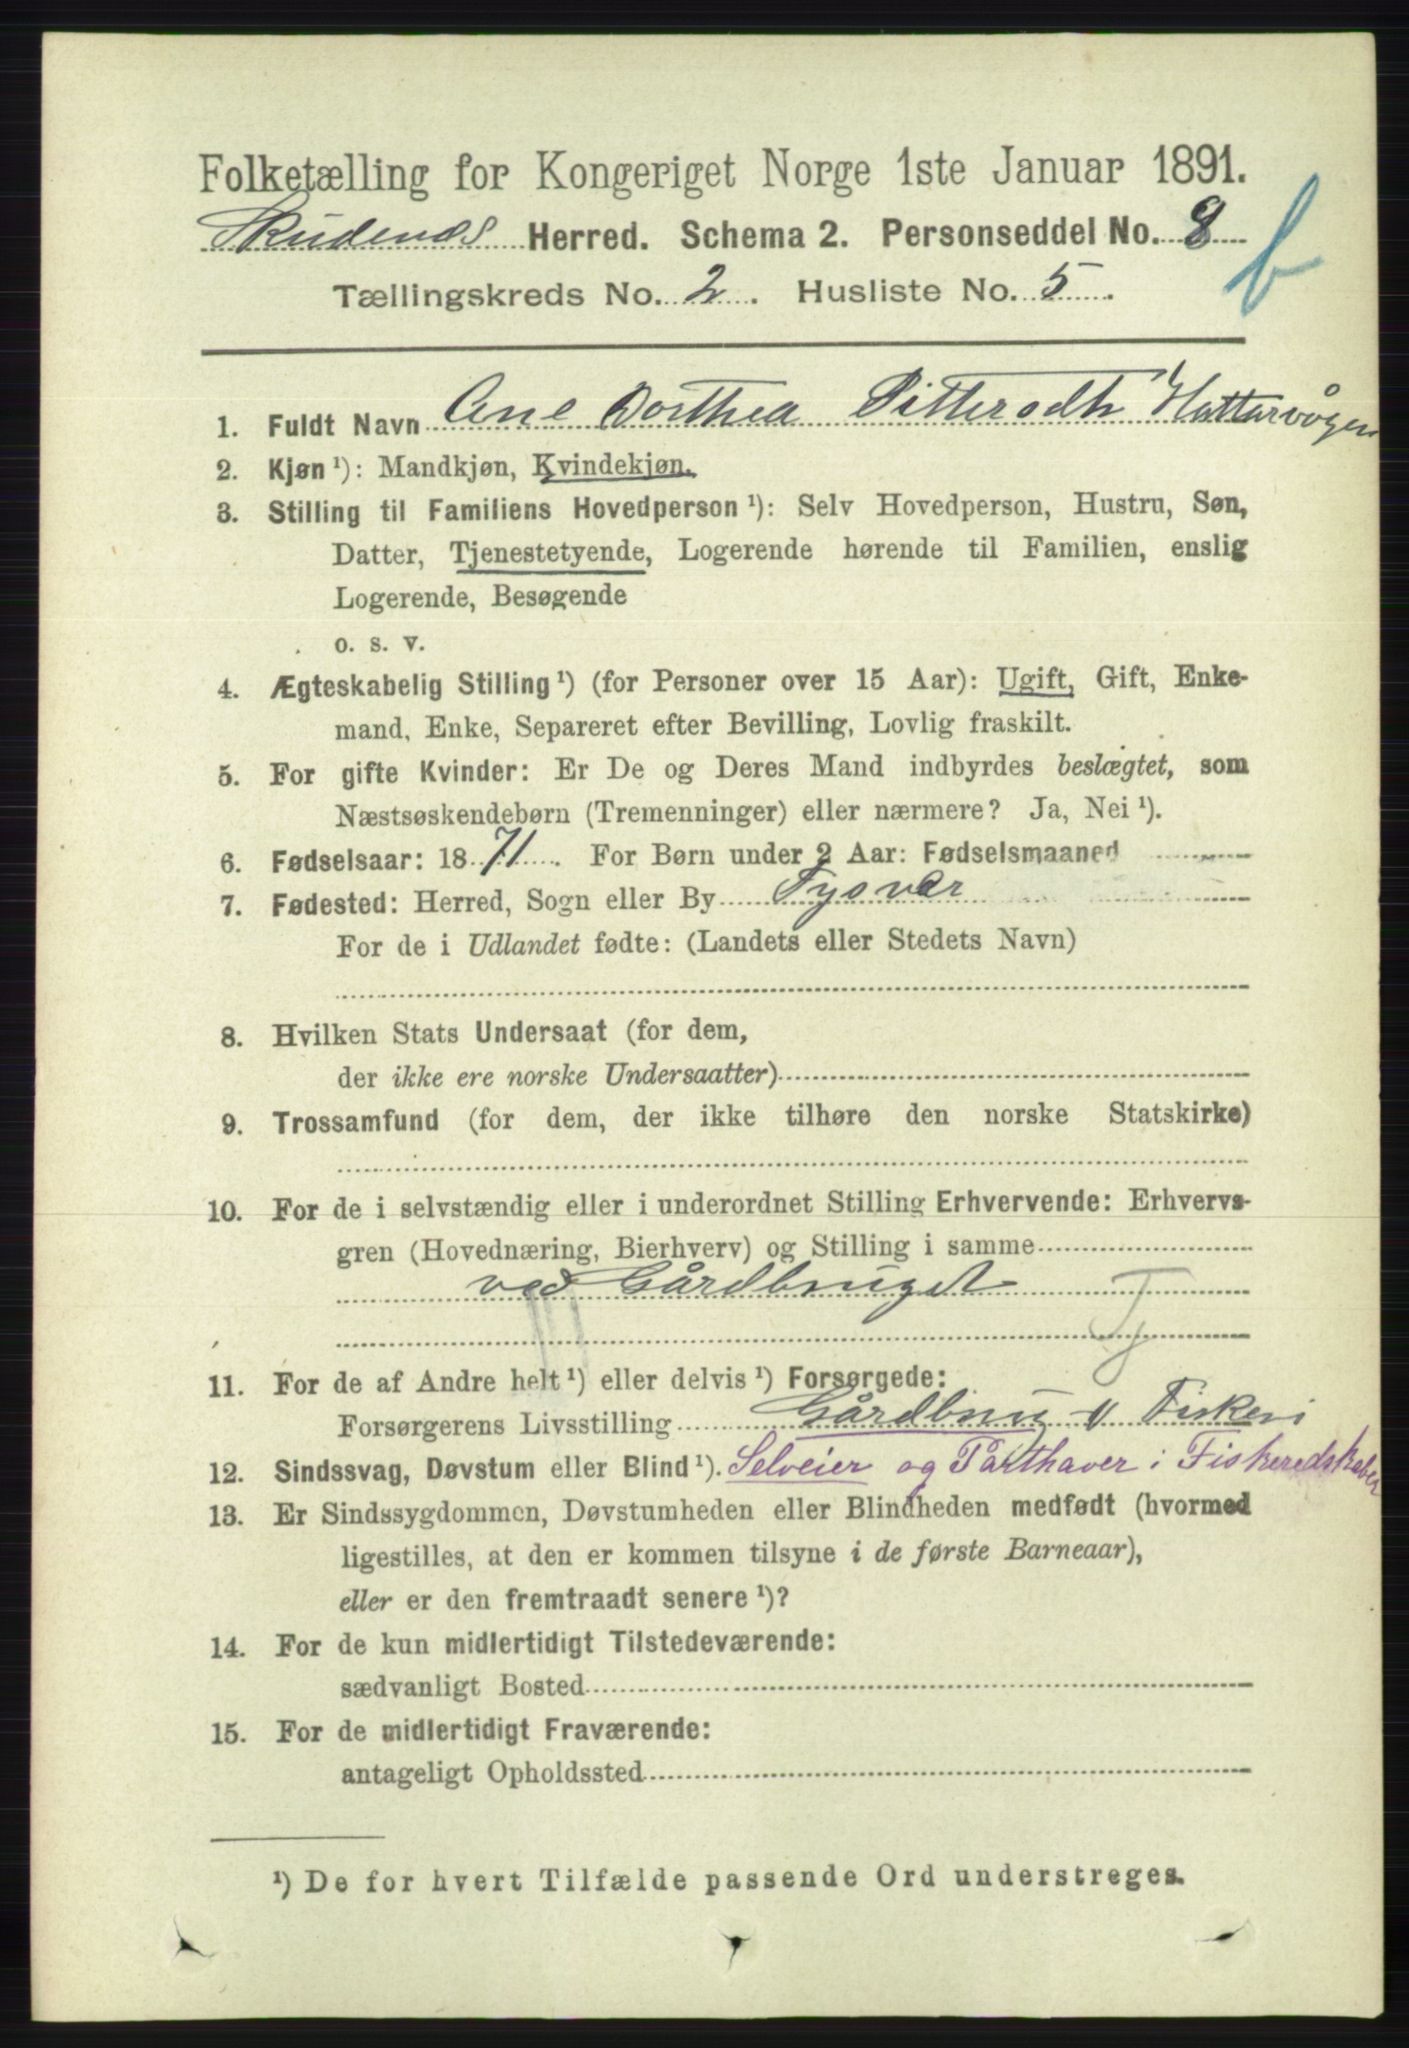 Folketælling for Kongeriget Norge 1ste Januar 1891.
Skudenes Herred. Schema 2. Personseddel No. 8
b
Tællingskreds No. 2. Husliste No. 5.
1. Fuldt Navn Ane Dorthea Hattervågen
2. Kjøn ¹): Mandkjøn, Kvindekjøn.
3. Stilling til Familiens Hovedperson ¹): Selv Hovedperson, Hustru, Søn,
Datter, Tjenestetyende, Logerende hørende til Familien, enslig
Logerende, Besøgende
o. s. v.
4. Ægteskabelig Stilling ¹) (for Personer over 15 Aar): Ugift, Gift, Enke-
mand, Enke, Separeret efter Bevilling, Lovlig fraskilt.
5. For gifte Kvinder: Er De og Deres Mand indbyrdes beslægtet, som
Næstsøskendebørn (Tremenninger) eller nærmere? Ja, Nei ¹).
6. Fødselsaar: 1871. For Børn under 2 Aar: Fødselsmaaned
7. Fødested: Herred, Sogn eller By Tysvær
For de i Udlandet fødte: (Landets eller Stedets Navn)
8. Hvilken Stats Undersaat (for dem,
der ikke ere norske Undersaatter)
9. Trossamfund (for dem, der ikke tilhøre den norske Statskirke)
10. For de i selvstændig eller i underordnet Stilling Erhvervende: Erhvervs-
gren (Hovednæring, Bierhverv) og Stilling i samme
ved Gårdbruget
Tj
11. For de af Andre helt ¹) eller delvis ¹) Forsørgede:
Forsørgerens Livsstilling Gårdbrug v Fiskeri
12. Sindssvag, Døvstum eller Blind ¹). Selveier og Parthaver i Fiskeredskaber
13. Er Sindssygdommen, Døvstumheden eller Blindheden medfødt (hvormed
ligestilles, at den er kommen tilsyne i de første Barneaar),
eller er den fremtraadt senere ¹)?
14. For de kun midlertidigt Tilstedeværende:
sædvanligt Bosted
15. For de midlertidigt Fraværende:
antageligt Opholdssted
¹) De for hvert Tilfælde passende Ord understreges.